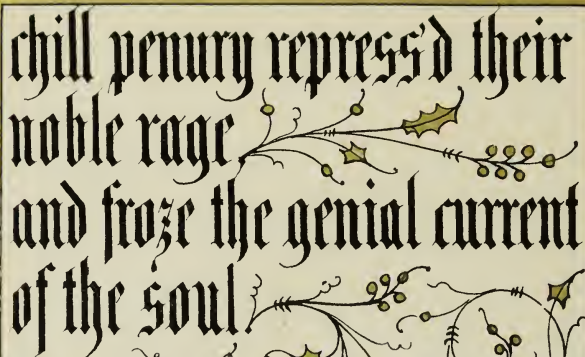 chill penury repress'd their
noble rage,
and froze the genial current
of the soul.